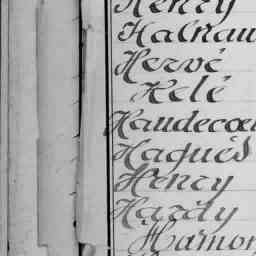 Henry
Halnau
Hervé
Helé
Haudecoe
Haqués
Henry
Hardy
Hamon